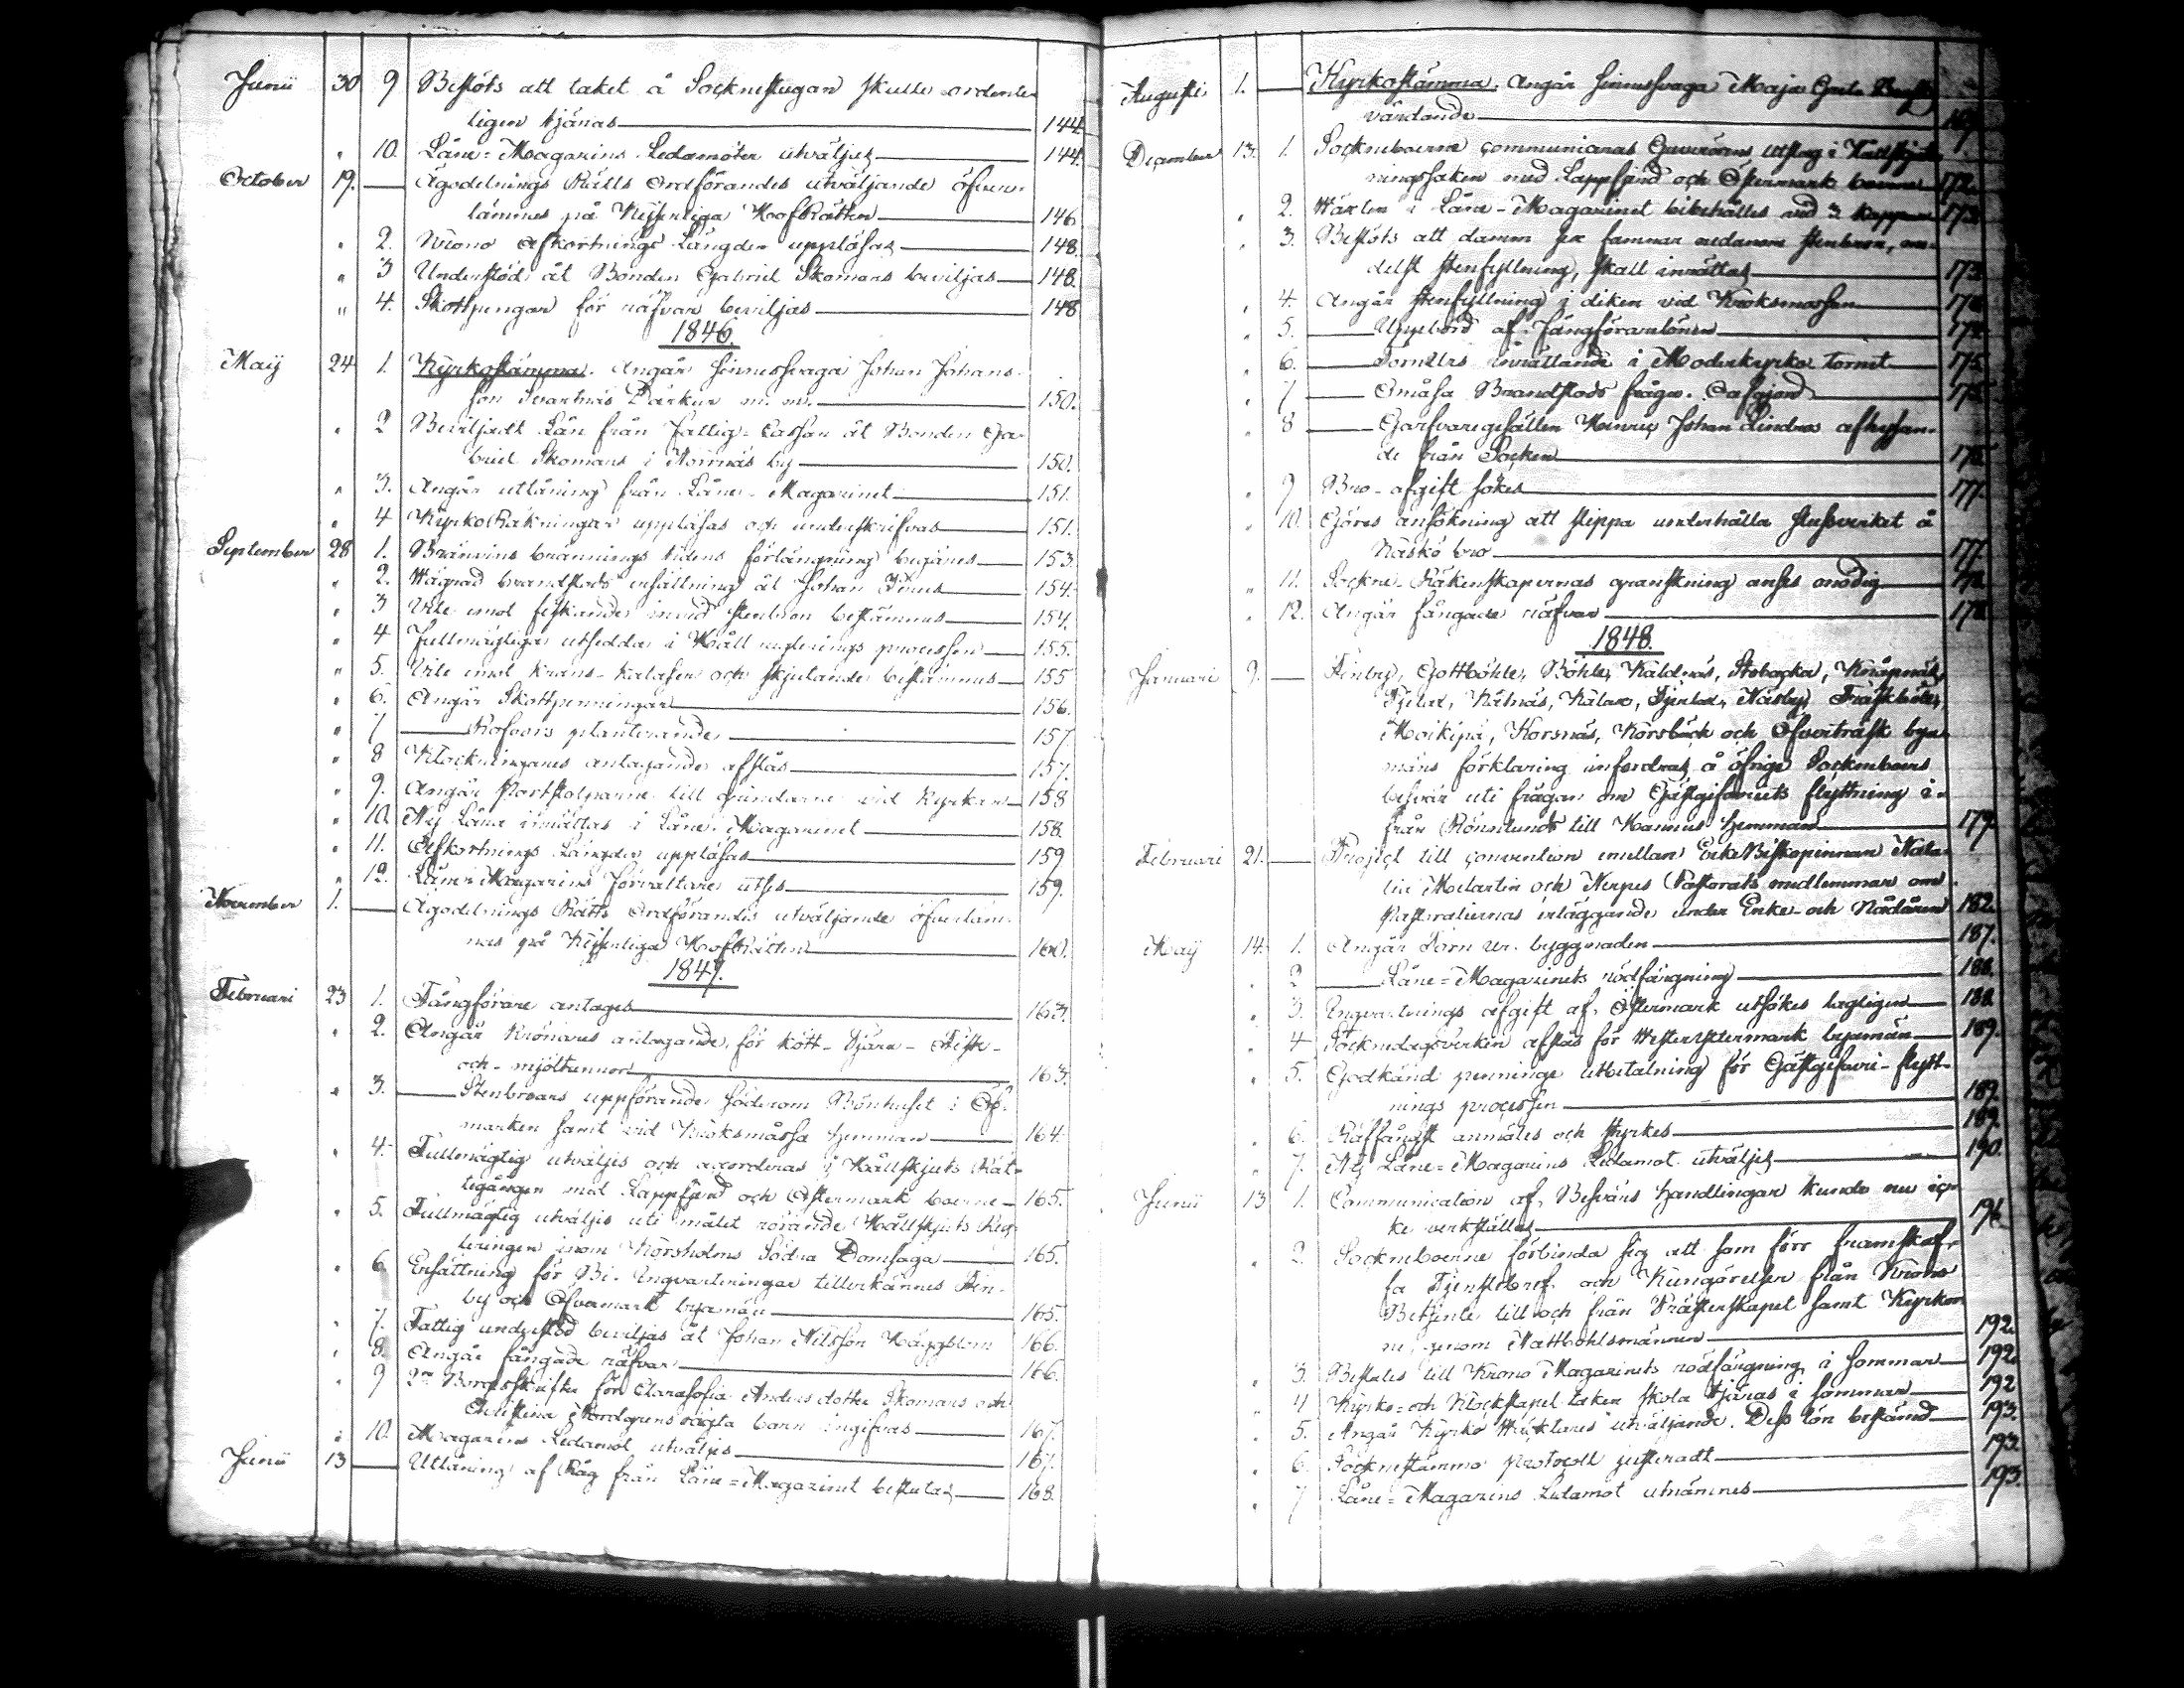 Junii 30 9 Beslöts att taket å Sockenstugan skulle ordente-
ligen tjäras 144.
" 10. Låne-Magazins Ledamöter utväljes 144.
October 19. Ägodelnings Rätts Ordförandes utväljande öfver-
lämnes på Kejserliga HofRätten 146.
" 2. Krono Afkortnings Längder uppläsas 148.
" 3 Understöd åt Bonden Gabriel Skomars beviljas 148.
" 4. Skottpengar för räfvar beviljas 148
1846.
Maij 24 1. Kyrkostämma. Angår sinnessvaga Johan Johans-
son Svartnäs Därkur m. m. 150.
" 2 Beviljadt Lån från Fattig-Cassan åt Bonden Ga-
briel Skomars i Norrnäs by 150.
" 3. Angår utlåning från Låne-Magazinet 151.
" 4 KyrkoRäkningar uppläsas och underskrifvas 151.
September 28 1. Bränvins bränningstidens förlängning begäres 153.
" 2. Vägrad brandstods ersättning åt Johan 154.
" 3 Vite emot fiskande invid stenbron bestämmes 154.
" 4 Fullmägtiga utsedda i Håll reglerings processen 155.
" 5. Vite emot krans-kalaser och skjutande bestämmes 155
" 6. Angår Skottpenningar 156.
" 7 planterande 157
" 8 Klockringares antagande afslås 157.
" 9. Angår Portstolparne till grindarne vid Kyrkan 158
" 10. Ny Låne inrättas i Låne-Magazinet 158.
" 11. Afkortnings Längder uppläsas 159
" 12. Låne-Magazins Förvaltare utses 159.
November 1. Ägodelnings Rätts Ordförandes utväljande öfverläm-
nas på Kejserliga HofRätten 160.
1847.
Februari 23 1. Fångförare antages 163.
" 2. Angår Krönares antagande, för kött- Tjäre- Fisk-
och mjöltunnor 163.
" 3. Stenbroars uppförande söderom Bönhuset i Öf-
marken samt vid Kroksmåssa hemman 164
" 4. Fullmägtig utväljes och accorderas i Hållskjuts Rät-
tegången med Lappfjärd och Östermark boerne 165.
" 5. Fullmägtig utväljes uti målet rörande Hållskjuts Reg-
leringen inom Korsholms Södra Domsaga 165.
" 6 Ersättning för Bi-Inqvarteringar tillerkännes Fin-
by och Öfvermark byamän 165.
" 7. Fattig understöd beviljas åt Johan Nilsson Häggblom 166.
" 8. Angår fångade räfvar 166.
" 9 2ne Borgesskrifter för Clarasofia Andersdotter Skomars och
Christina Nordgrens oägta barn ingifvas 167.
" 10. Magazins Ledamot utväljes 167.
Junii 13 Utlåning af Råg från Låne-Magazinet beslutas 168.
Augusti 1. Kyrkostämma. Angår sinnessvaga Maja
vårdande
December 13. 1. Sockneboerne communiceras Guvernörens utslag i Hållskjuts-
ningssaken med Lappfjärd och Östermark boerne 172.
" 2. Växten i Låne-Magazinet bibehålles vid 3 kappar 173
" 3. Beslöts att damm sex famnar nedanom stenbron, me-
delst stenfyllning, skall inrättas 173
" 4. Angår stenfyllning i diken vid Kroksmossen 174
" 5. Uppbörd af Fångförarelönen 174.
" 6. TornUrs inrättande i Moderkyrko tornet 175.
" 7 Brandstods frågor. 175
" 8 Garfvaregesällen Henric Johan Lindros afhysan-
de från Socken
" 9 Bro-afgift sökes 177.
" 10. Göres ansökning att slippa underhålla slussverket å
Näskö bro 177.
" 11. Sockne-Räkenskapernas granskning anses onödig 178.
" 12. Angår fångade räfvar 178.
1848.
Januari 9. Finby, Gottböhle, Böhle, Kaldnäs, Åsbacka, Knåpnäs,
Tjelax, Nämpnäs, Kalax, Tjerlax, Näsby, Träskböle,
Moikipä, Korsnäs, Korsbäck och Öfverträsk bya-
mäns förklaring infordras, å öfrige Sockneboers
besvär uti frågan om Gästgifveriets flyttning i-
från Rönnlunds till Hannus hemman 179.
Februari 21. Project till convention emellan EnkeBiskopinnan Nata-
lia Melartin och Nerpes Pastorats medlemmar om
Pastoraliernas erläggande under Enke- och Nådåren 182.
Maij 14. 1. Angår Torn ur. byggnaden 187.
" 2 Låne-Magazinets rödfärgning 188.
" 3. Inqvarterings afgift af Östermark utsökes lagligen 188
" 4 Socknedagsverken afslås för Vesteröstermark byamän 189.
" 5. Godkänd penninge utbetalning för Gästgifveri-flytt-
nings processen 189.
" 6. Räffångst anmäles och styrkes 189.
" 7. Ny Låne-Magazins Ledamot utväljes 190.
Junii 13 1. Communication af Besvärs handlingar kunde nu ic-
ke verkställas 191.
" 2. Sockneboerne förbinda sig att som förr framskaf-
fa Tjenstebref och Kungörelser från Krono
Betjente till och från Prästerskapet samt Kyrkor-
ne, genom Nattbohlsmännen 192.
" 3. Beslutes till Krono Magazinets rödfärgning i sommar 192.
" 4 Kyrko- och Klockstapel taken skola tjäras i sommar 192
" 5. Angår Kyrko Väcktares utväljande. Dess lön bestämd 193.
" 6. Socknestämmo protocoll justeradt 193.
" 7 Låne-Magazins Ledamot utnämnes 193.